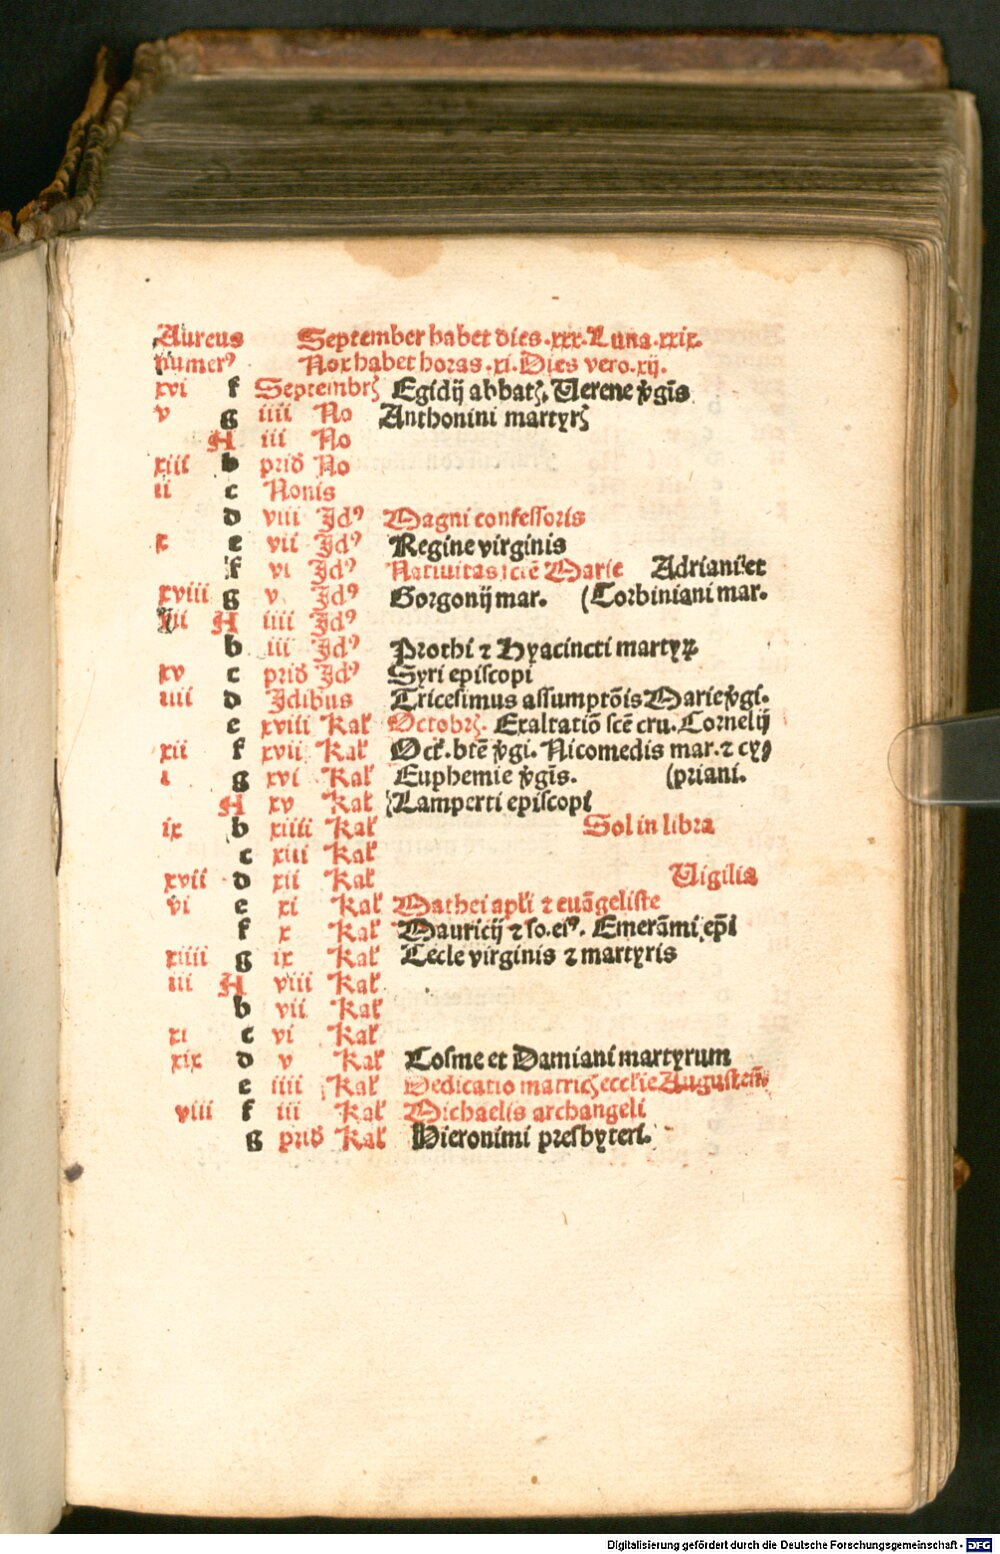 Aureus September habet dies .xxx. Luna .xxix.
numerꝰ Nox habet horas .xi. Dies vero .xij.
xvi f Septembrꝭ Egidij abbatꝭ. Uerene v̄gīs
v g iiii No Anthonini martyrꝭ
A iii No
xiii b prid No
ii c Nonis
d viii Idꝰ Magni confessoris
x e vii Idꝰ Regine virginis
f vi Idꝰ Natiuitas scē Marie Adriani et
xviii g v Idꝰ Gorgonij mar. (Corbiniani mar.
vii A iiii Idꝰ
b iii Idꝰ Prothi ⁊ Hyacincti martyꝝ
xv c prid Idꝰ Syri episcopi
iiii d Idibus Tricesimus assumptōis Marie v̄gi.
e xviii Kal Octobrꝭ. Exaltatiō scē cru. Cornelij
xii f xvii Kal Oct. btē v̄gi. Nicomedis mar. ⁊ cy
i g xvi Kal Euphemie v̄gīs. (priani.
A xv Kal Lamperti episcopi
ix b xiiii Kal Sol in libra
c xiii Kal
xvii d xii Kal Uigilia
vi e xi Kal Mathei apli ⁊ euāgeliste
f x Kal Mauricij ⁊ so. eiꝰ. Emerāmi ep̄i
xiiii g ix Kal Tecle virginis ⁊ martyris
iii A viii Kal
b vii Kal
xi c vi Kal
xix d v Kal Cosme et Damiani martyrum
e iiii Kal Dedicatio matricꝭ ecclie Augusteñ.
viii f iii Kal Michaelis archangeli
g prid Kal Hieronimi presbyteri.
Digitalisierung gefördert durch die Deutsche Forschungsgemeinschaft - DFG